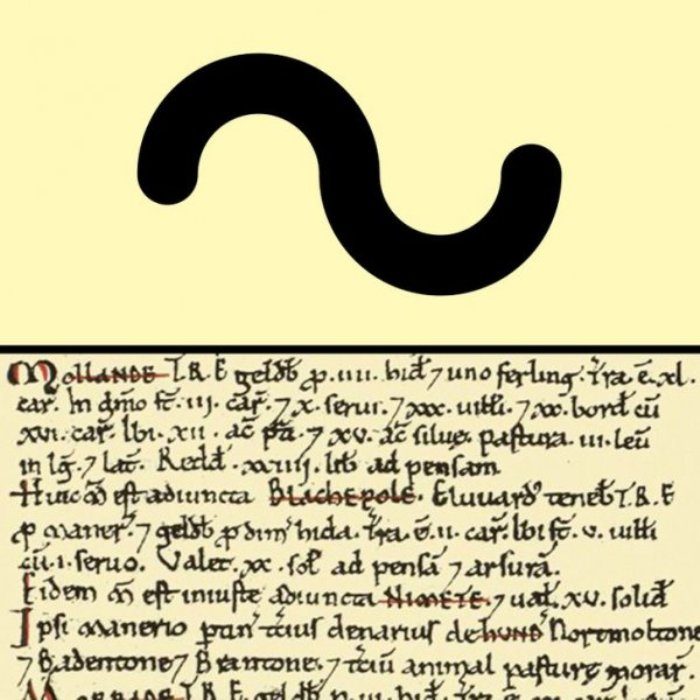 Mollande T.R.E geldb̄ p̱.iiii. hid̄ ⁊ uno ferling. t̄ra ē.xl.
car̄. In dn̄io st̄.iii. car̄. ⁊ x. serui. ⁊ xxx. uilli. ⁊ xx. bord̄ cū
xvi. car̄. Ibi.xii. ac̄ p̄ti. ⁊ xv. ac̄ siluę. pastura.iii. leū
in lḡ. ⁊ lat̄. Redd̄.xxiiii. lib̄ ad pensam
Huic m̄ est adiuncta Blachepole. Eluuard' teneb̄ T.R.E
p̱ maner̄. ⁊ geldb̄ p̱ dim̄ hida. t̄ra ē.ii. car̄. Ibi st̄.v. uilli
cū.i. seruo. Valet.xx. sol̄ ad pensā ⁊ arsurā.
Eidem m̄ est iniuste adiuncta Nimete. ⁊ ual̄.xv. solid̄
Ipsi manerio ptin̄ t̄cius denarius de hund̄ Nortmoltone
⁊ Badentone ⁊ Brantone. ⁊ t̄ciū animal pasturę morar̄
T.R.E geldb̄